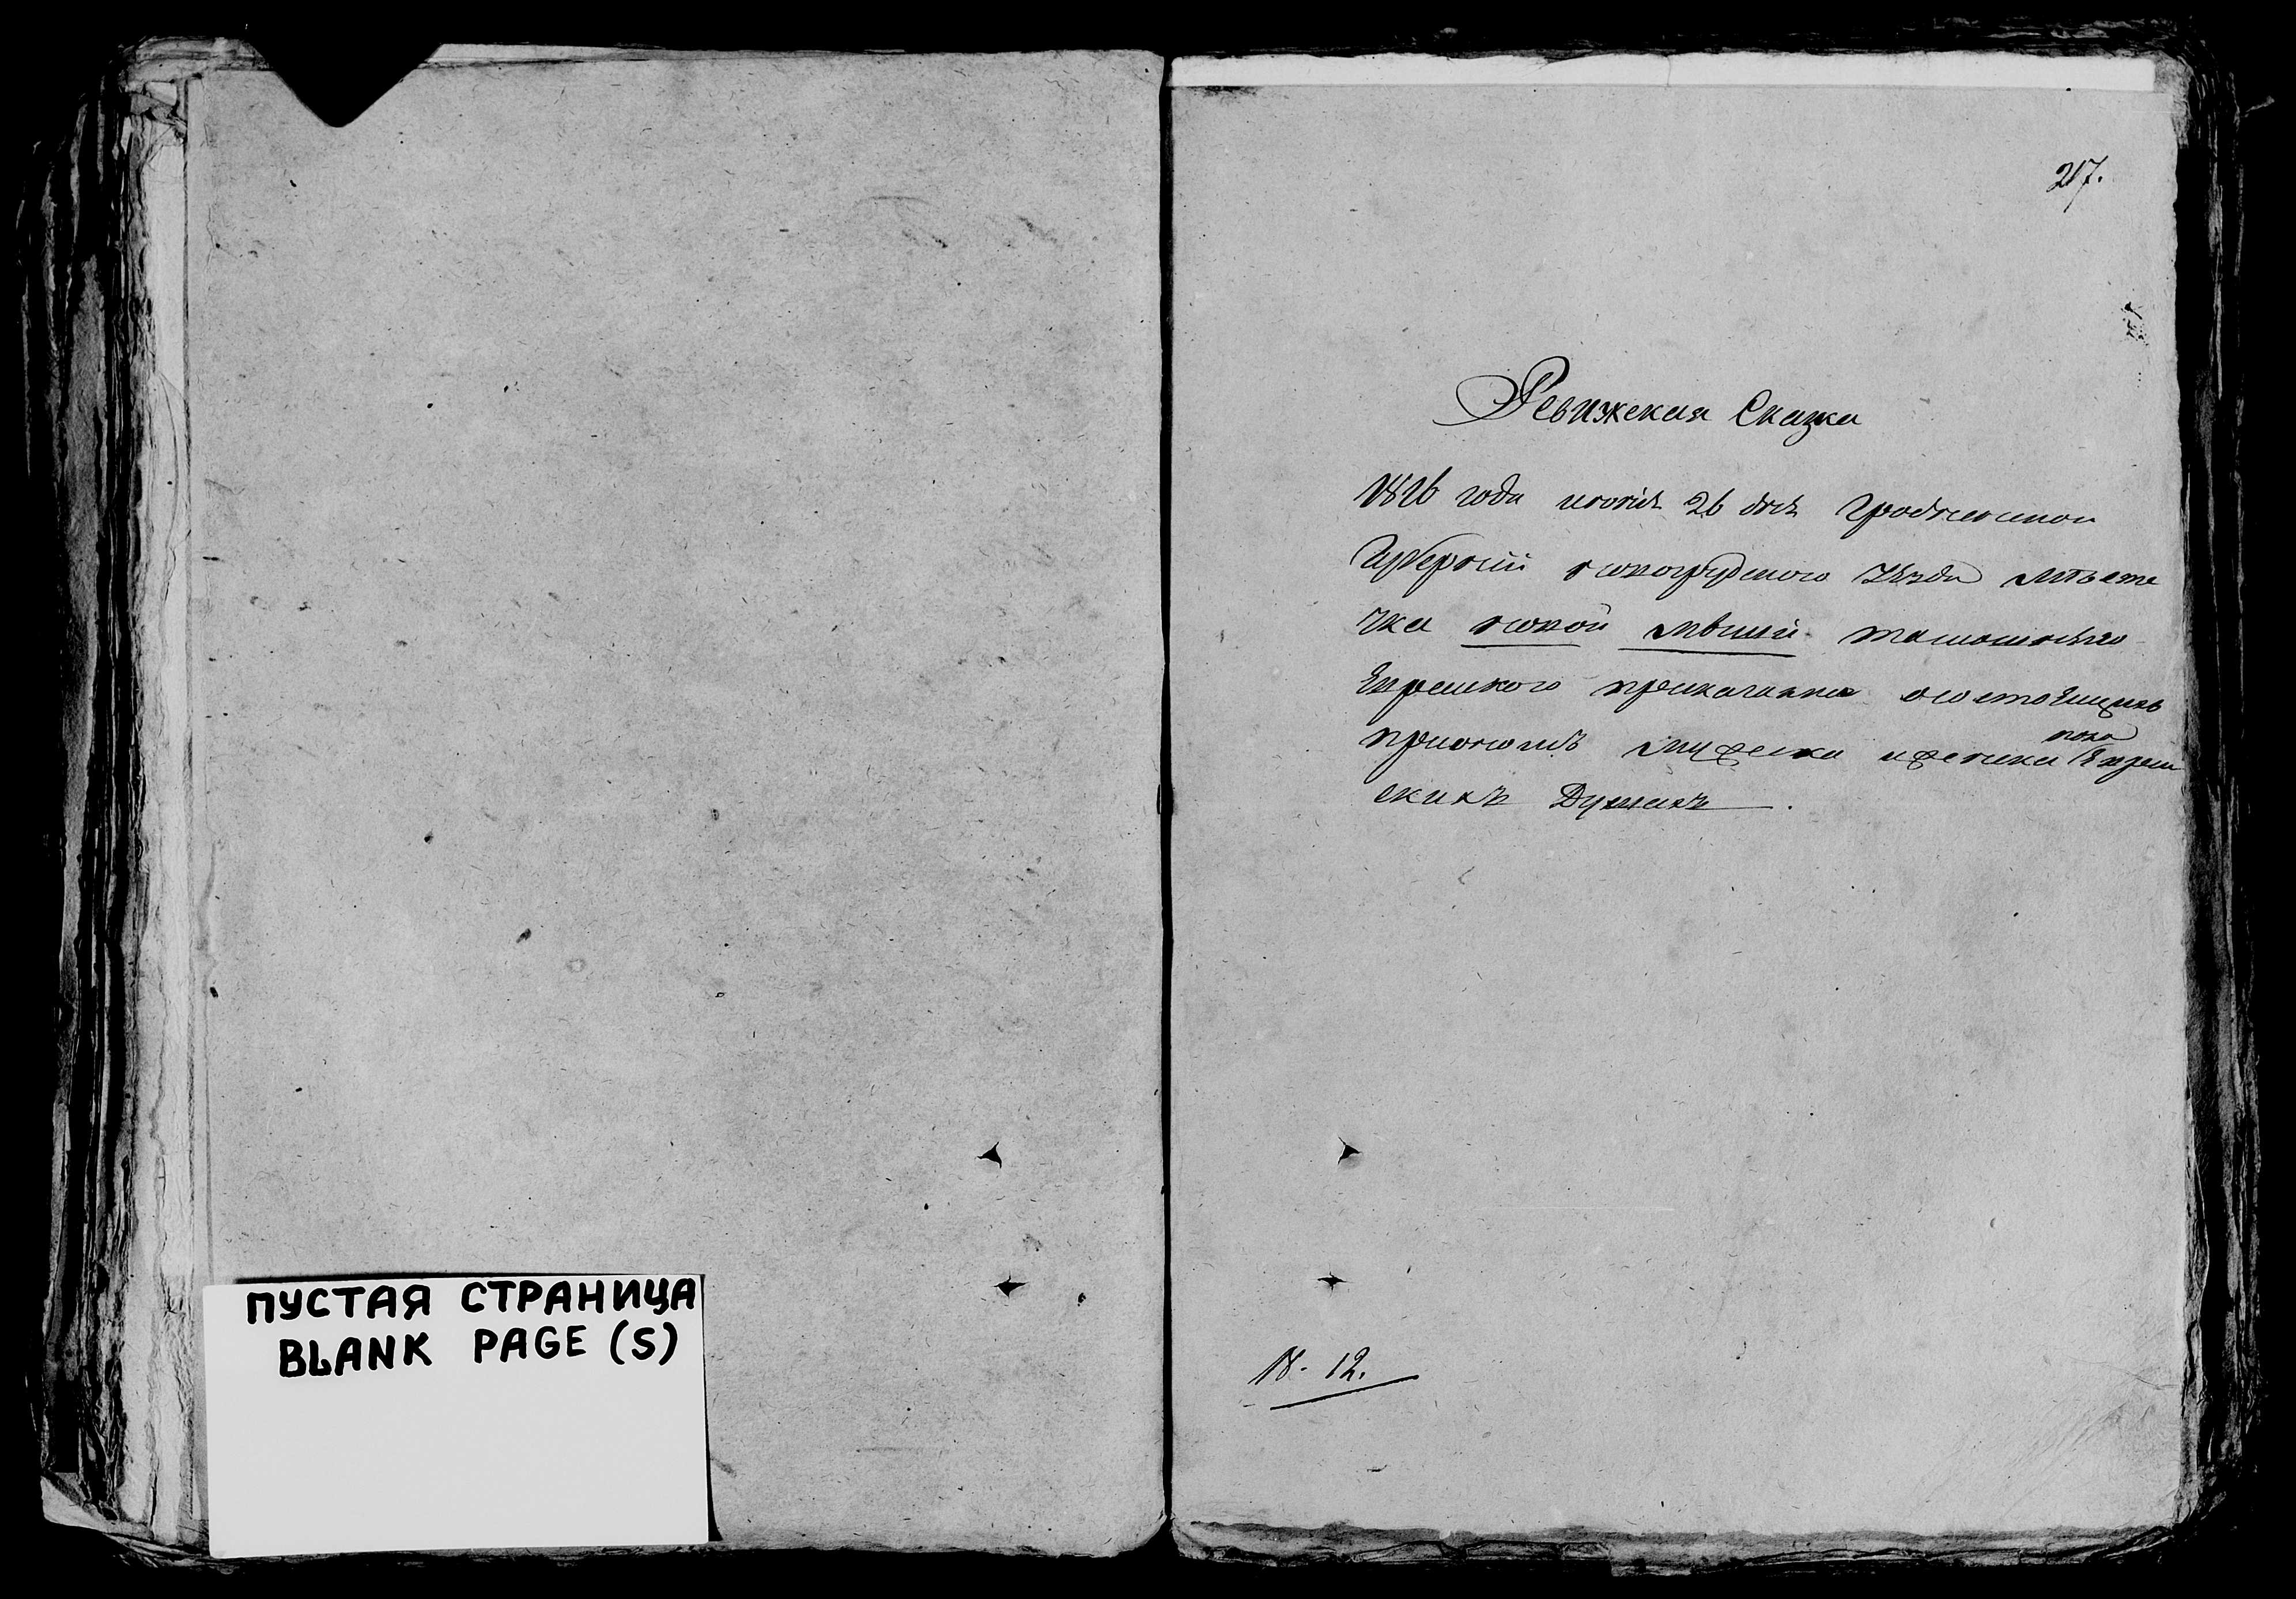 ПУСТАЯ СТРАНИЦА
BLANK PAGE (S)
217.
Ревижская Сказка
1816 года июня 26 дня Гродненской
Губернии новогрудского Уезда места
чка новой мыши тамошняго
Еврейского о состоящихъ
мужеска и женска пола Еврей
скихъ Душахъ.
18. 12.